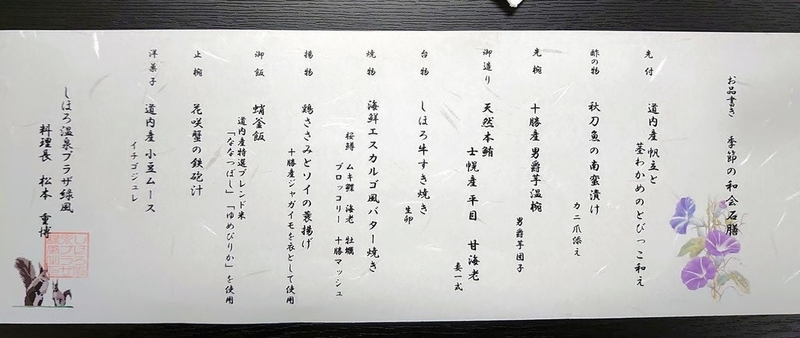 お品書き 季節の和会石膳
先付 道内産帆立と
茎わかめのとびっこ和え
酢の物 秋刀魚の南蛮漬け
カニ爪添え
先椀 十勝産男爵芋温椀
男爵芋団子
御造り 天然本鮪
士幌産平目 甘海老
妻一式
台物 しほろ牛すき焼き
生卵
焼物 海鮮エスカルゴ風バター焼き
桜鱒 ムキ鰈 海老 牡蠣
ブロッコリー 十勝マッシュ
揚物 鶏ささみとソイの蓑揚げ
十勝産ジャガイモを衣として使用
御飯 蛸釜飯
道内産特選ブレンド米
「ななつぼし」「ゆめぴりか」を使用
止椀 花咲蟹の鉄砲汁
洋菓子 道内産小豆ムース
イチゴジュレ
しほろ温泉プラザ緑風
料理長 松本 重博